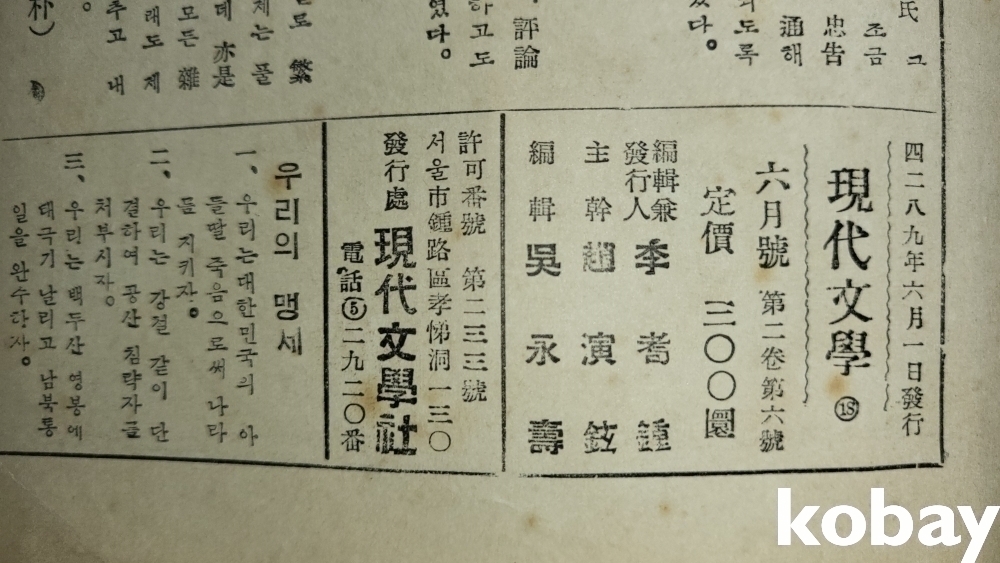 氏 그
조금
忠告
通해
되도록
다。
評論
하고도
였다。
로 繁
제는 풀
데 亦是
모든 雜
래도 제
추고 내
朴)
四二八九年六月一日發行
現代文學 ⑱
六月號 第二卷第六號
定價 三〇〇圜
編輯兼
發行人 李耆鍾
主幹 趙演鉉
編輯 吳永壽
許可番號 第二三三號
서울市鍾路區孝悌洞一三〇
發行處 現代文學社
電話⑤二九二〇番
우리의 맹세
一、우리는대한민국의 아
들딸 죽음으로써 나라
를 지키자。
二、우리는 강철 같이 단
결하여 공산 침략자를
처부시자。
三、우리는 백두산 영봉에
태극기 날리고 남북통
일을 완수하자。
kobay